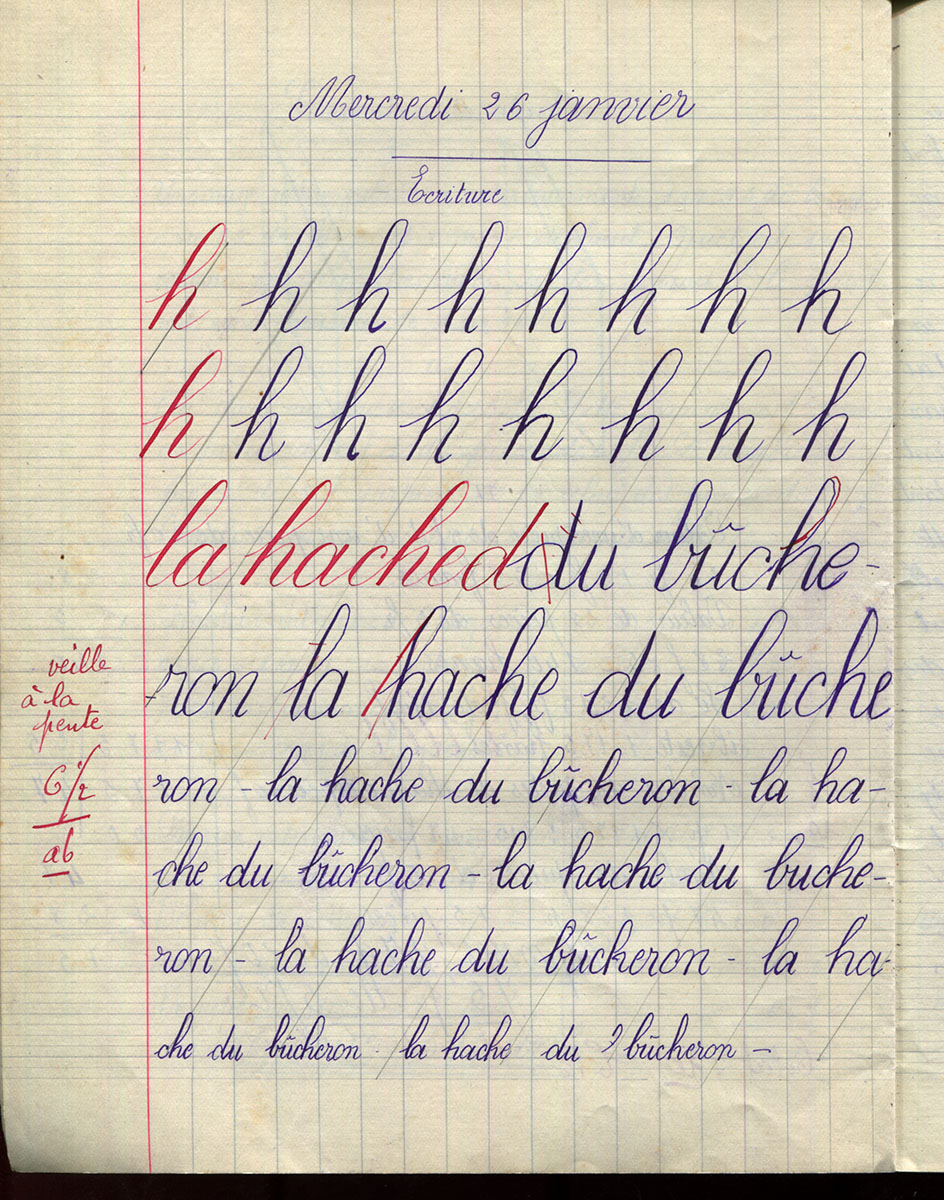 Mercredi 26 janvier
Ecriture
h h h h h h h h
h h h h h h h h
la hached du bûche-
ron la hache du bûche
ron - la hache du bûcheron - la ha-
che du bûcheron - la hache du buche-
ron - la hache du bûcheron - la ha-
che du bûcheron - la hache du bûcheron -
veille
à la
pente
6 1/2
ab